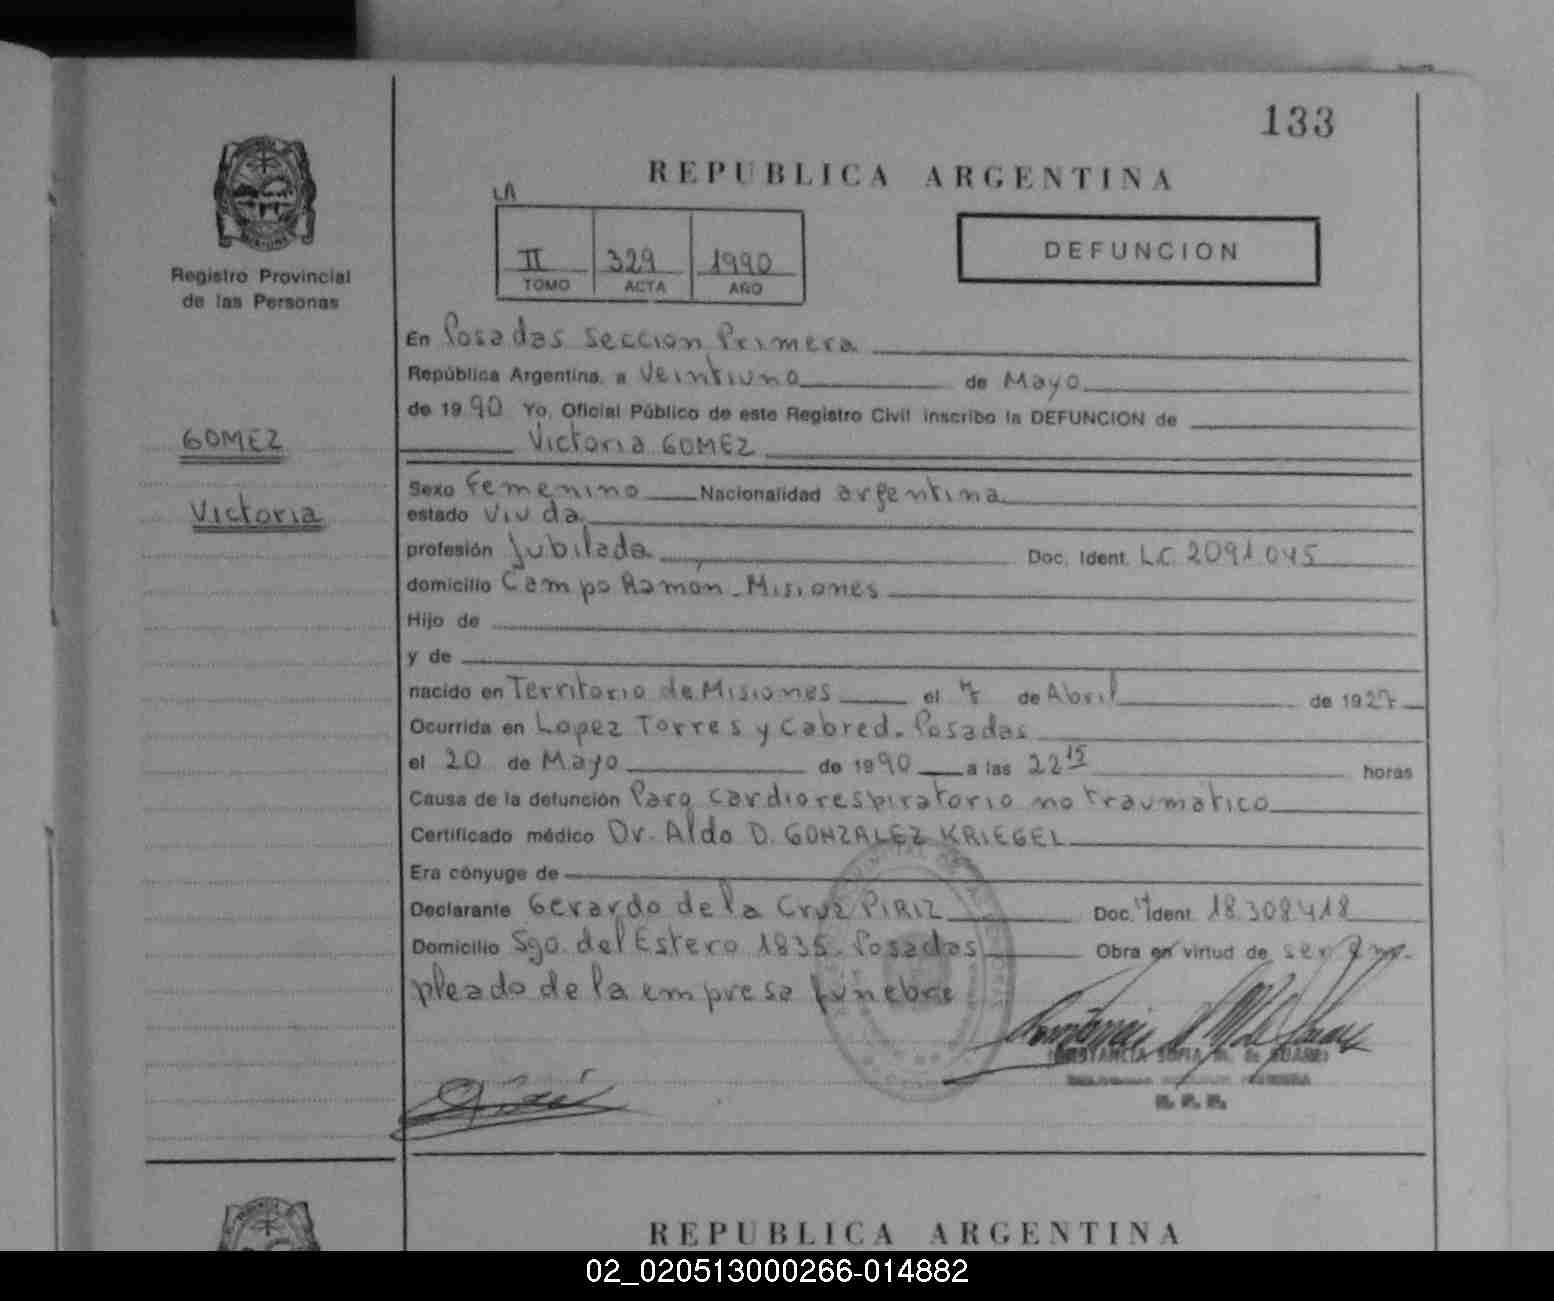 133
REPUBLICA ARGENTINA
Registro Provincial
de las Personas
LA
II 329 1990
TOMO ACTA AÑO
DEFUNCION
En Posadas Seccion Primera
República Argentina, a Veintiuno de Mayo
de 1990 Yo, Oficial Público de este Registro Civil inscribo la DEFUNCION de
Victoria GOMEZ
GOMEZ
Victoria
Sexo Femenino Nacionalidad argentina
estado Viuda
profesión Jubilada Doc. Ident. L.C. 2091.045
domicilio Campo Ramón - Misiones
Hijo de
y de
nacido en Territorio de Misiones el 7 de Abril de 1927
Ocurrida en Lopez Torres y Cabred. Posadas
el 20 de Mayo de 1990 a las 22 15 horas
Causa de la defunción Paro cardiorespiratorio no traumatico
Certificado médico Dr. Aldo D. GONZALEZ KRIEGEL
Era cónyuge de
Declarante Gerardo de la Cruz PIRIZ Doc. Ident. 18.308.418
Domicilio Sgo. del Estero 1835. Posadas Obra en virtud de ser em-
pleado de la empresa funebre
CONSTANCIA SOFIA M. de SUAREZ
REPUBLICA ARGENTINA
02_020513000266-014882